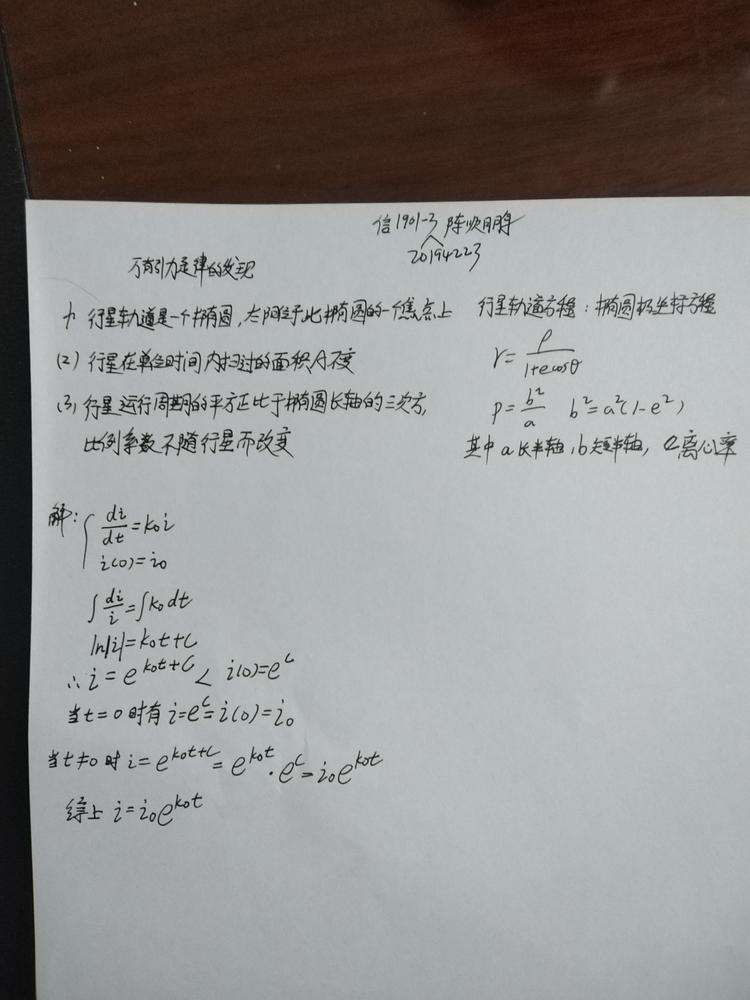 信1901-3 陈顺鹏
20194223
万有引力定律的发现
1. 行星轨道是一个椭圆,太阳位于此椭圆的一个焦点上
(2) 行星在单位时间内扫过的面积不变
(3) 行星运行周期的平方正比于椭圆长轴的三次方,
比例系数不随行星而改变
行星轨道方程:椭圆极坐标方程
r = p/(1+ecosθ)
p = b²/a b² = a²(1-e²)
其中 a 长半轴, b 短半轴, e 离心率
解: { di/dt = k₀i
i(0) = i₀
∫ di/i = ∫ k₀ dt
ln|i| = k₀t+C
∴ i = e^(k₀t+C) < i(0) = e^C
当 t=0 时有 i = e^C = i(0) = i₀
当 t≠0 时 i = e^(k₀t+C) = e^(k₀t) · e^C = i₀e^(k₀t)
综上 i = i₀e^(k₀t)